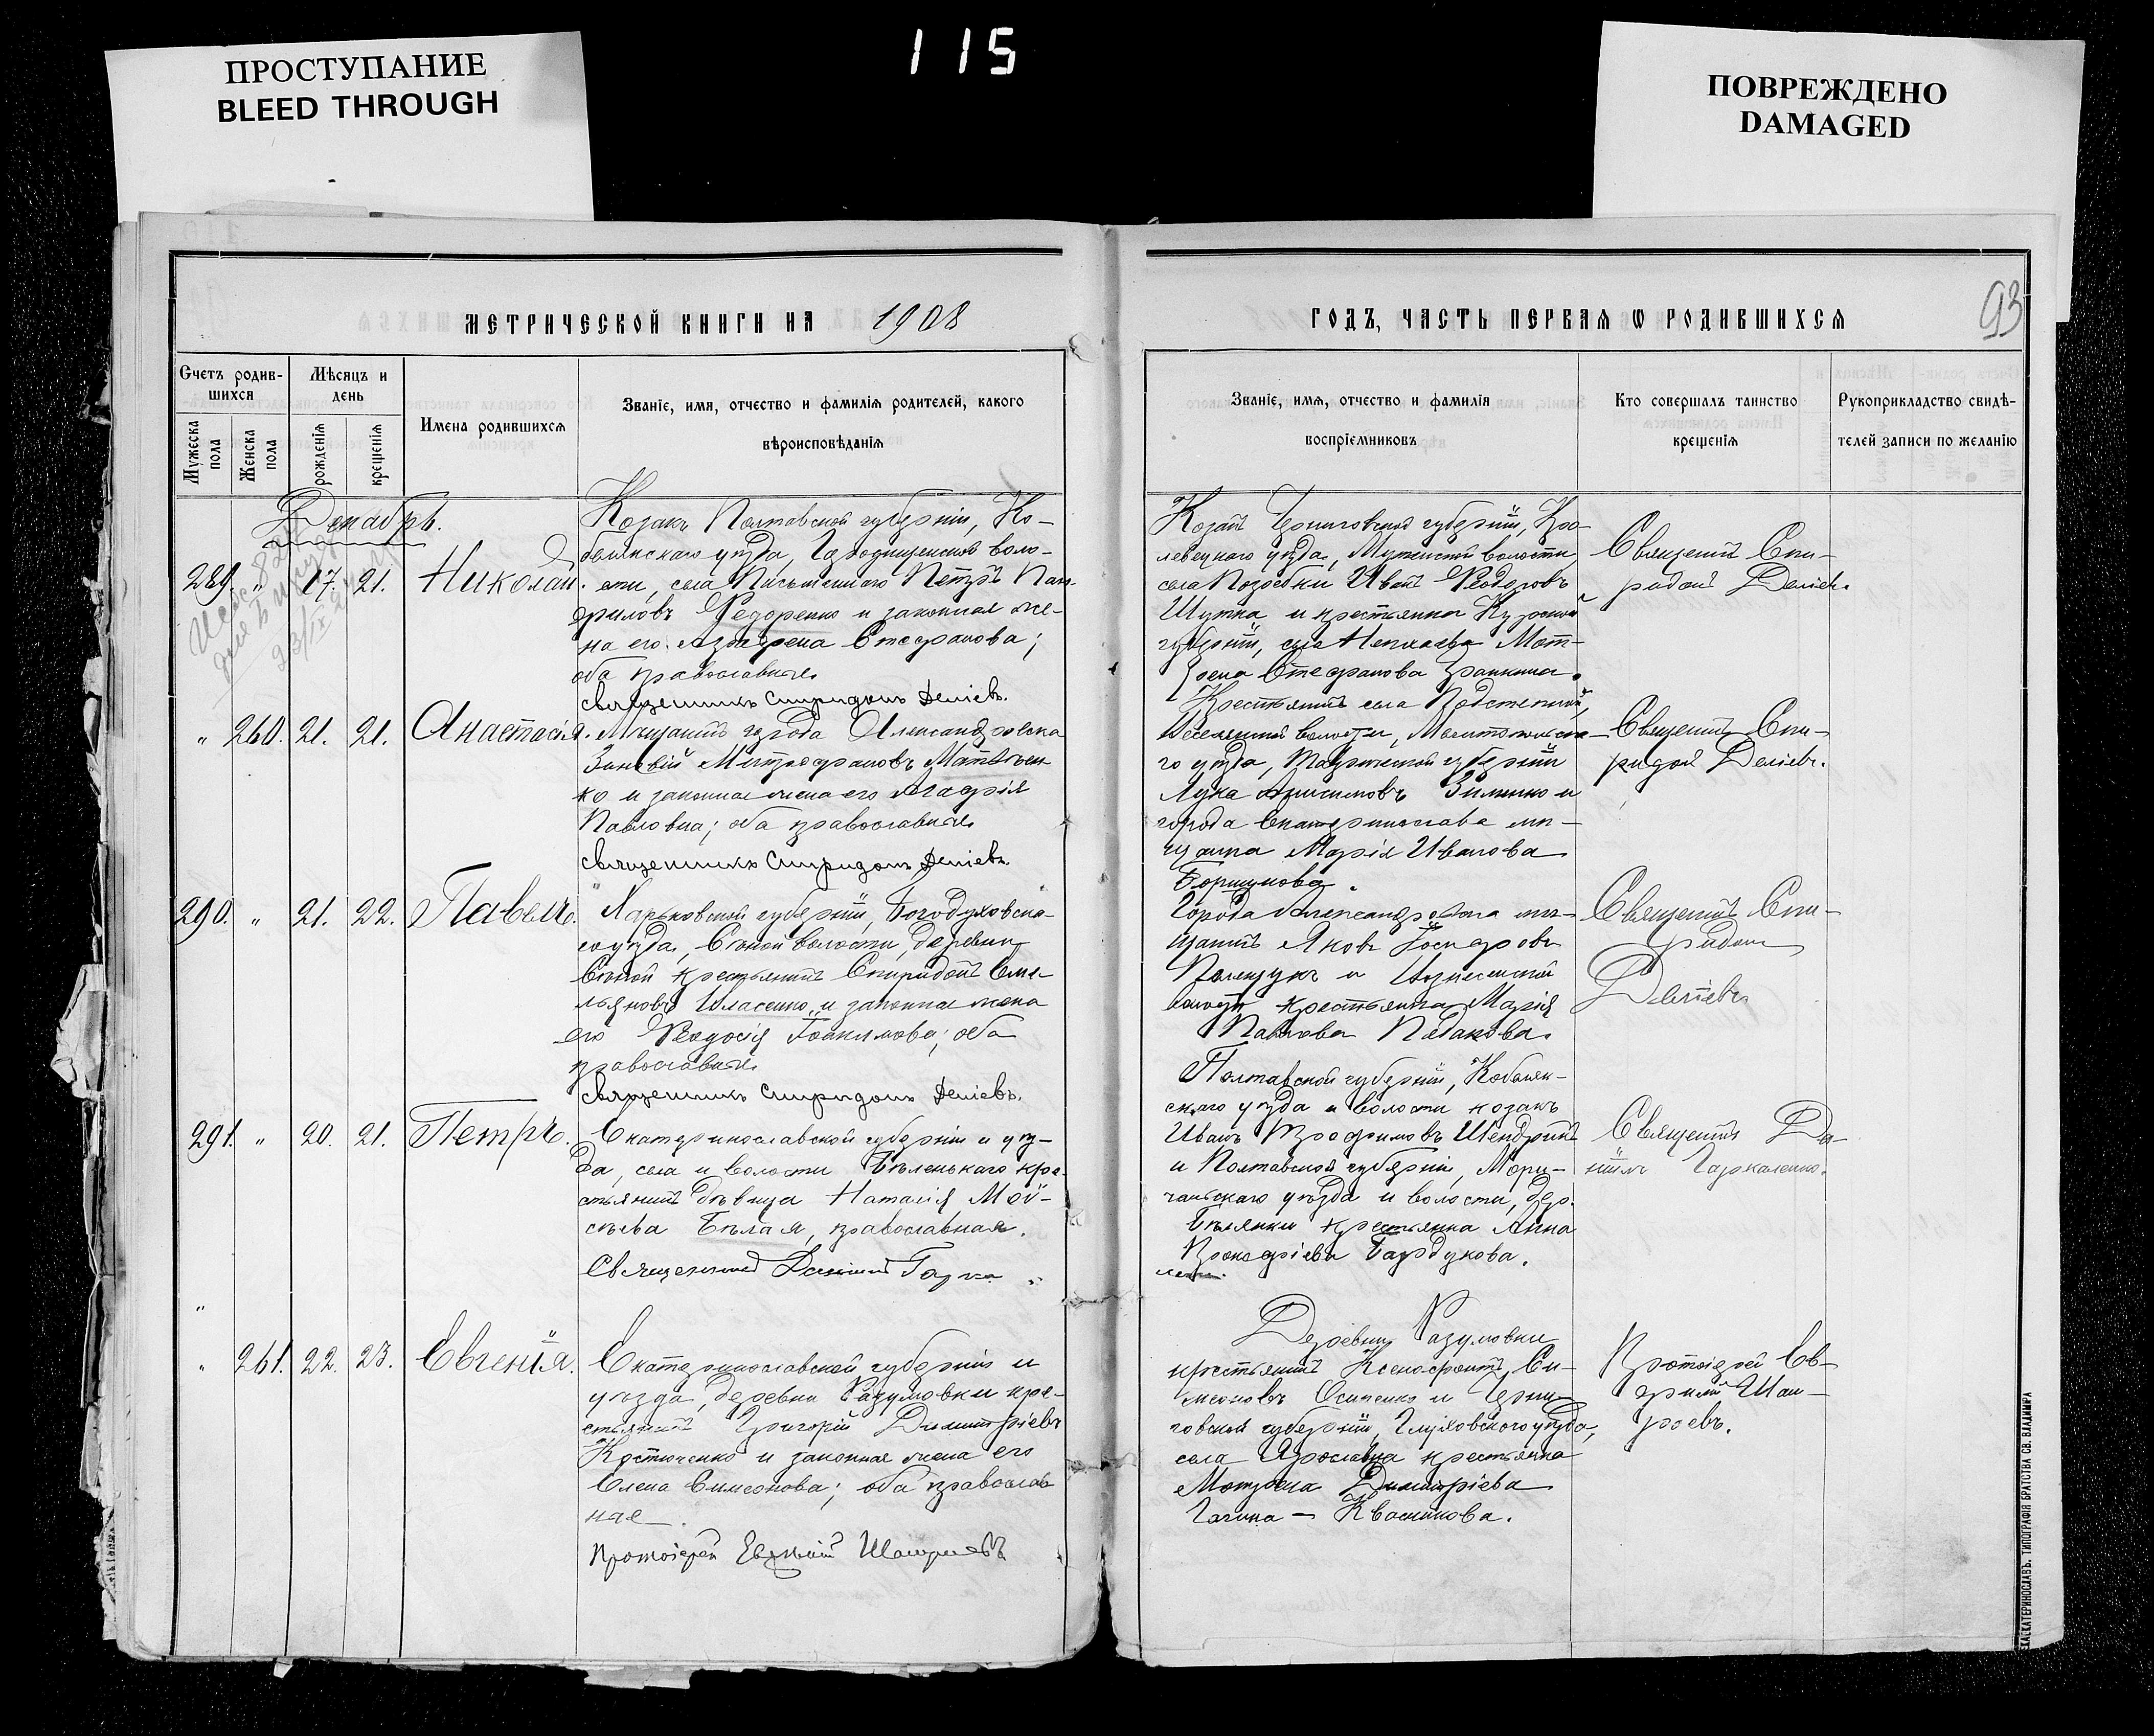 115
ПРОСТУПАНИЕ
BLEED THROUGH
ПОВРЕЖДЕНО
DAMAGED
93
МЕТРИЧЕСКОЙ КНИГИ НА 1908
ГОДЪ, ЧАСТЬ ПЕРВАЯ Ѡ РОДИВШИХСЯ
Счетъ родив-
шихся
Мужеска пола
Женска пола
Мѣсяцъ и
день
рожденія
крещенія
Имена родившихся
Званіе, имя, отчество и фамилія родителей, какого
вѣроисповѣданія
Званіе, имя, отчество и фамилія
воспріемниковъ
Кто совершалъ таинство
крещенія
Рукоприкладство свидѣ-
телей записи по желанію
Декабрь.
289. " 17. 21. Николай.
Козакъ Полтавской губерніи, Ко-
белякскаго уѣзда, волo-
сти, села Петръ
Федоренко и законная же-
на его Стефанова;
оба православные
Священникъ Спиридонъ Деліевъ.
Козакъ Черниговской губерніи, Кро-
левецкаго уѣзда, волости,
села Иванъ Феодоровъ
и крестьянка Курской
губерніи, села Мат-
рона Стефанова
Священникъ Спи-
ридонъ Деліевъ.
" 260. 21. 21. Анастасія.
Мѣщанинъ города Александровска
Зиновій Митрофановъ Матвѣен
ко и законная жена его Марія
Павловна; оба православные
Священникъ Спиридонъ Деліевъ.
Крестьянинъ села
волости, Мелитопольска-
го уѣзда, Таврической губерніи
Лука и
города Екатеринослава мѣ-
щанка Марія Иванова
Священникъ Спи-
ридонъ Деліевъ.
290. " 21. 22. Павелъ.
Харьковской губерніи, Богодуховска-
го уѣзда, Сѣнной волости, деревни
Сѣнной крестьянинъ Спиридонъ Еме-
льяновъ Власенко и законная жена
его Феодосія Іоакимова; оба
православные
Священникъ Спиридонъ Деліевъ.
Города Александровска мѣ-
щанинъ Яковъ
и Вознесенской
волости крестьянка Марія
Павлова
Священникъ Спи-
ридонъ
Деліевъ
291. " 20. 21. Петръ.
Екатеринославской губерніи и уѣз-
да, села и волости Бѣленькаго кре-
стьянинъ дѣвица Наталія Мои-
сѣева Бѣлая, православная.
Священникъ Даніилъ
Полтавской губерніи, Кобеляк-
скаго уѣзда и волости козакъ
Иванъ Трофимовъ
и Полтавской губерніи,
уѣзда и волости, дер.
крестьянка Анна
Прокофіева
Священникъ Да-
ніилъ Гаркаленко.
" 261. 22. 23. Евгенія.
Екатеринославской губерніи и
уѣзда, деревни Разумовки кре-
стьянинъ Григорій Димитріевъ
Костюченко и законная жена его
Елена Симеонова; оба православ
ные
Протоіерей Евѳимій
Деревни Разумовки
крестьянинъ Ксенофонтъ Си-
меоновъ Осипенко и Черни-
говской губерніи, Глуховского уѣзда,
села Ярославца крестьянка
Матрона Димитріева
Протоіерей Ев-